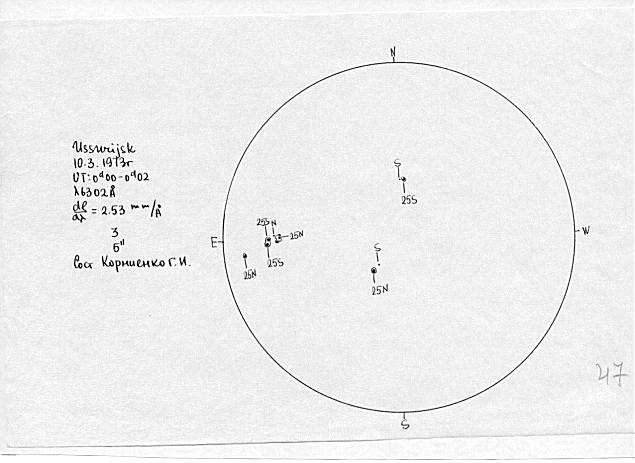 N
Ussurijsk
10.3.1973г
UT: 0ᵈ00-0ᵈ02
λ6302Å
dl/dλ = 2.53 mm/Å
3
5"
Сост Корниенко Г.И.
S
25S
25S N
25N
E
W
25S
25N
S
25N
47
S